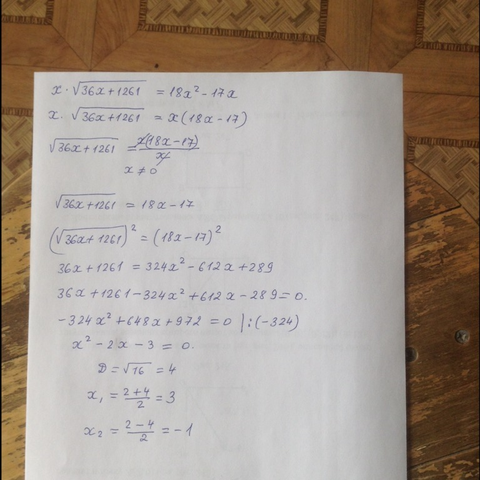 x · √36x+1261 = 18x² - 17x
x · √36x+1261 = x(18x-17)
√36x+1261 = x(18x-17)/x
x ≠ 0
√36x+1261 = 18x-17
(√36x+1261)² = (18x-17)²
36x+1261 = 324x² - 612x + 289
36x+1261-324x²+612x-289=0.
-324x²+648x+972 = 0 |:(-324)
x² - 2x - 3 = 0.
D = √16 = 4
x₁ = 2+4/2 = 3
x₂ = 2-4/2 = -1